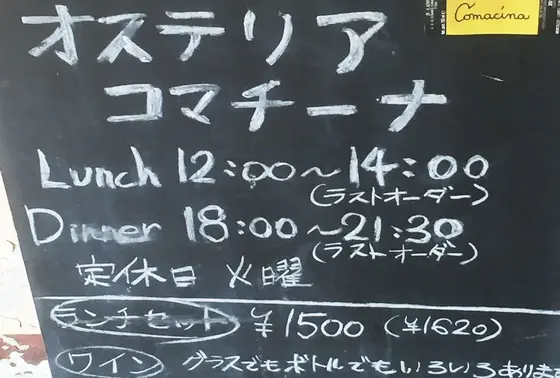 Comacina
オステリア
コマチーナ
Lunch 12:00〜14:00
(ラストオーダー)
Dinner 18:00〜21:30
(ラストオーダー)
定休日 火曜
ランチセット ¥1500 (¥1620)
ワイン グラスでもボトルでもいろいろありま